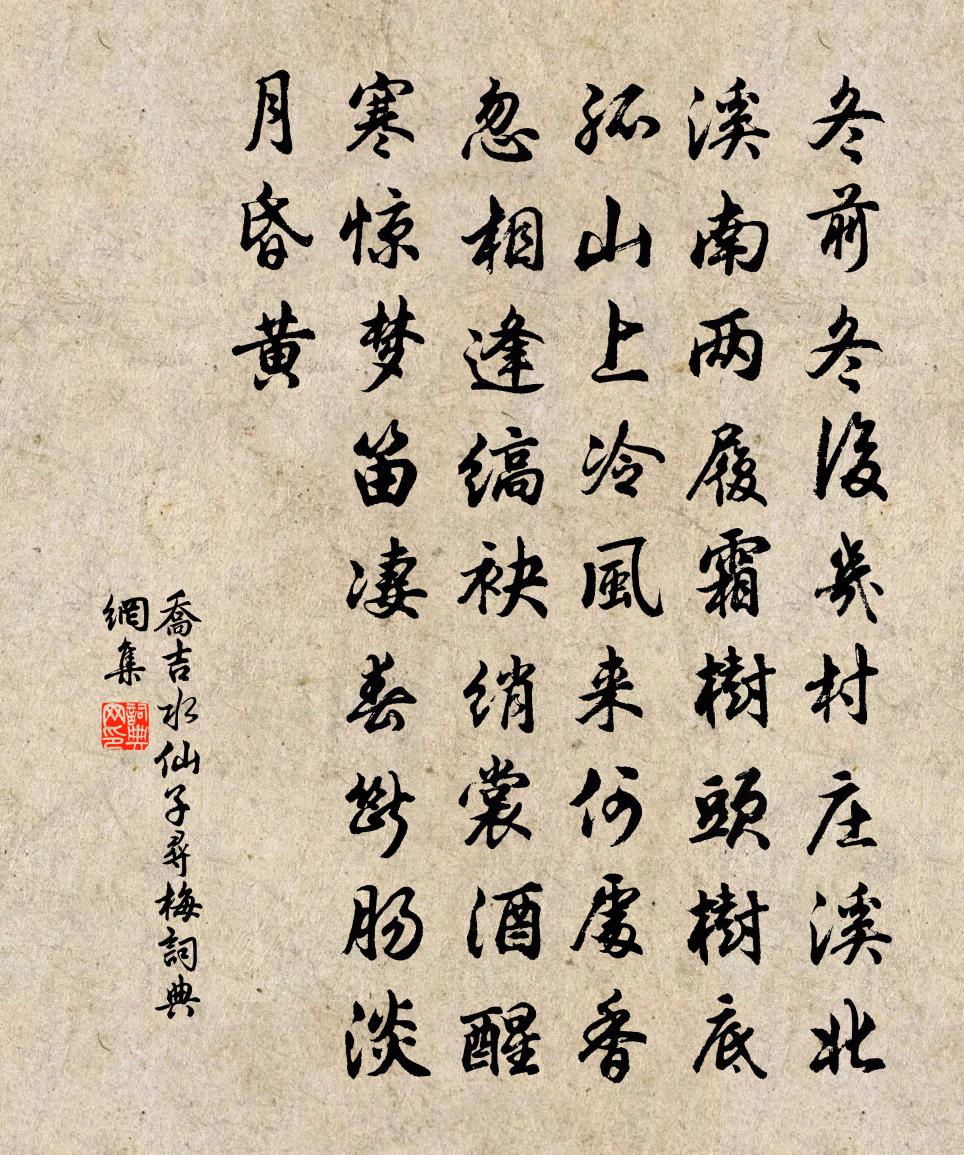 冬前冬後幾村庄溪北
溪南两履霜樹頭樹底
孤山上冷風来何處香
忽相逢缟袂绡裳酒醒
寒惊梦笛凄春断肠淡
月昏黄
喬吉水仙子尋梅詞典
網集
詞典网印